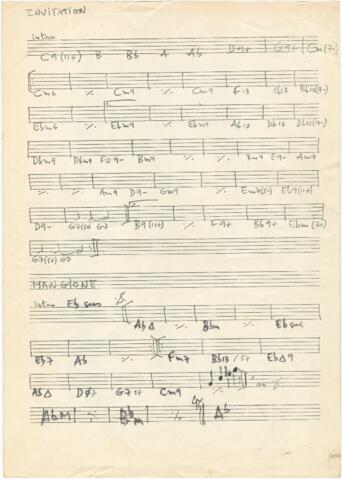 INVITATION
intro
C9(11+) B Bb A Ab D9+ G9+ Cm(7+)
Cm6 ٪ Cm9 ٪ Cm9 F13 B13 Bb13(9-)
Ebm6 ٪ 1. Ebm9 ٪ Ebm9 Ab13 Db13 Db13(9-)
Dbm9 Dbm9 F#9- Bm9 ٪ ٪ Bm9 E9- Am9
٪ ٪ Am9 D9- Gm9 ٪ Em7(5-) Eb9(11+)
D9- G7(5+) G7 2. B9(11+) ٪ F9+ Bb9+ Ebm(7+)
G7(5+) G7
MANGIONE
intro Eb sus
Ab△ ٪ Bbm ٪ Eb sus
Eb7 Ab ٪ Fm7 Bb13/5+ Eb△9
Ab△ DØ7 G7 5+ Cm9
AbM ٪ BbM ٪ Ab